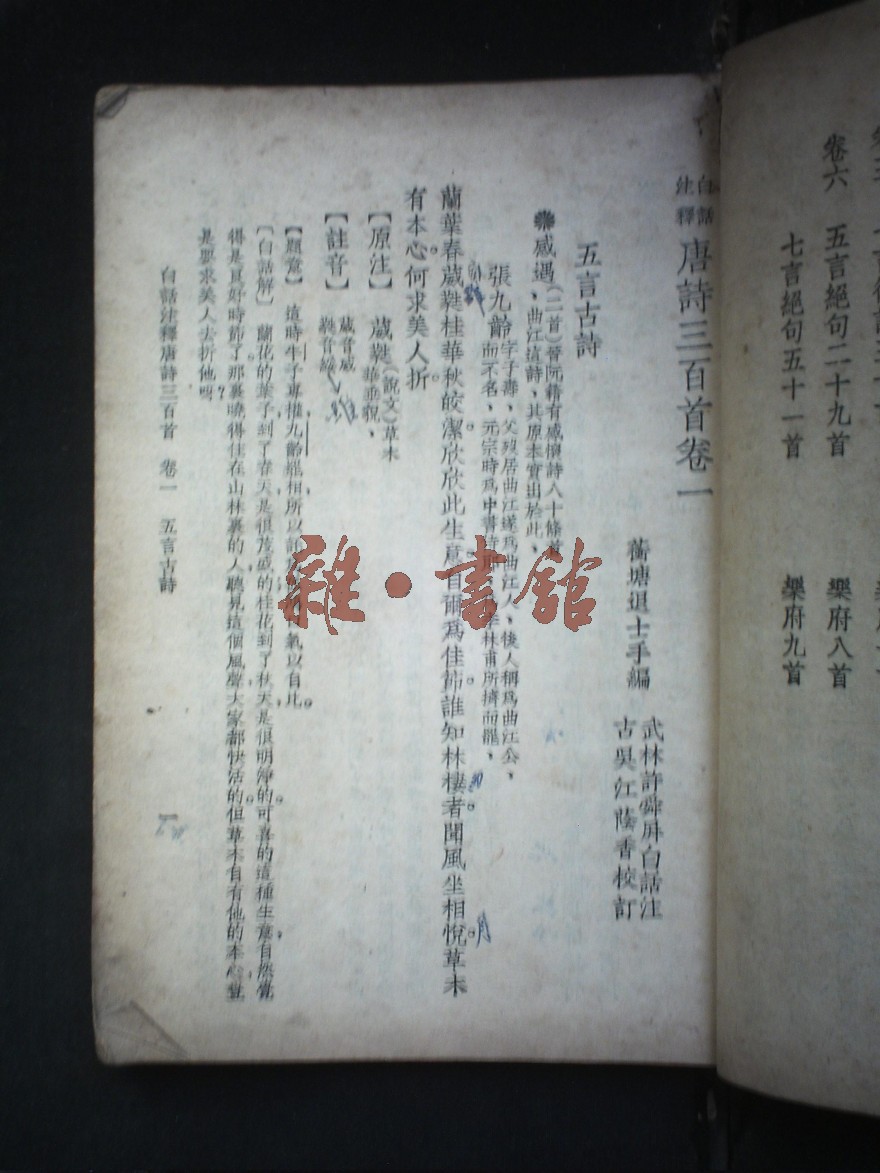 卷六　五言絕句二十九首　樂府八首
七言絕句五十一首　樂府九首
白話註釋唐詩三百首卷一
蘅塘退士手編
武林許舜屏白話注
古吳江蔭香校訂
五言古詩
感遇(二首)晉阮籍有感懷詩八十餘首
、曲江這詩、其原本實出於此、
張九齡字子壽、父歿居曲江遂爲曲江人、後人稱爲曲江公、
而不名、元宗時爲中書侍 李林甫所擠而罷、
蘭葉春葳蕤桂華秋皎潔欣欣此生意自爾爲佳節誰知林棲者聞風坐相悅草木
有本心何求美人折
【原注】　葳蕤(說文)草木
華垂貌、
【註音】　葳音威
蕤音緌
【題意】　這時牛子專權九齡罷相所以 氣以自比
【白話解】　蘭花的葉子到了春天是很茂盛的桂花到了秋天是很明淨的可喜的這種生意自然覺
得是良好時節了那裏曉得住在山林裏的人聽見這個風聲大家都快活的但草木自有他的本心豈
是要求美人去折他嗎？
白話注釋唐詩三百首　卷一　五言古詩
一
雜·書館